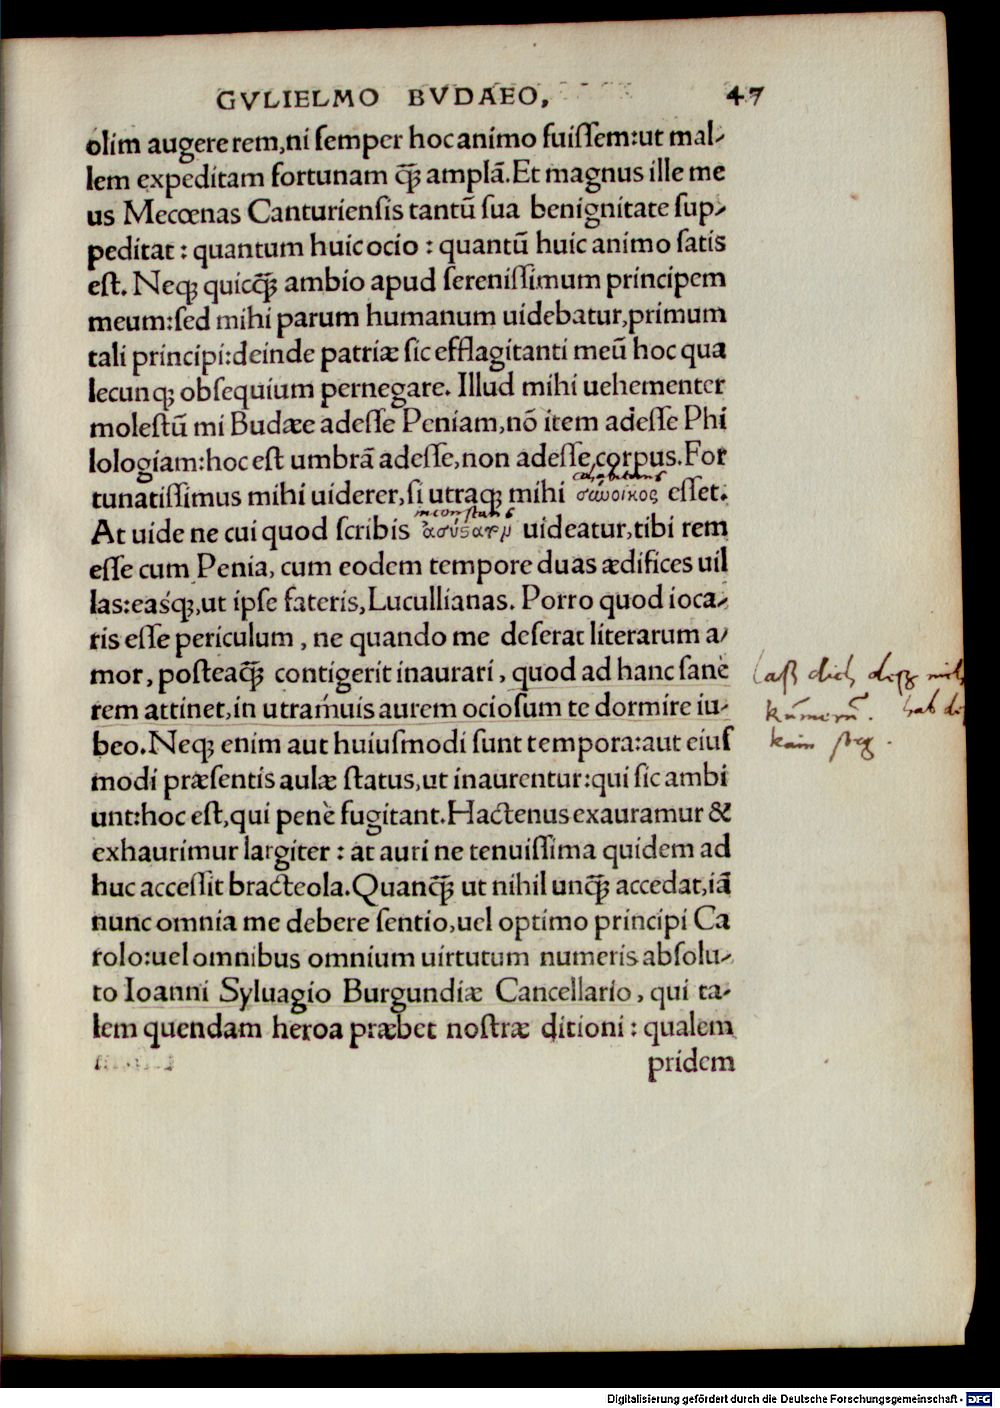 GVLIELMO BVDAEO, 47
olim augere rem,ni ſemper hoc animo fuiſſem:ut mal⸗
lem expeditam fortunam ꝙ̃ amplā.Et magnus ille me
us Mecœnas Canturienſis tantū ſua benignitate ſup⸗
peditat : quantum huic ocio : quantū huic animo ſatis
eſt. Neqꝫ quicꝙ̃ ambio apud ſereniſſimum principem
meum:ſed mihi parum humanum uidebatur,primum
tali principi:deinde patriæ ſic efflagitanti meū hoc qua
lecunqꝫ obſequium pernegare. Illud mihi uehementer
moleſtū mi Budæe adeſſe Peniam,nō item adeſſe Phi
lologiam:hoc eſt umbrā adeſſe,non adeſſe corpus.For
tunatiſſimus mihi uiderer,ſi utraqꝫ mihi σύνοικος eſſet.
inconstans
At uide ne cui quod ſcribis uideatur,tibi rem
eſſe cum Penia, cum eodem tempore duas ædifices uil
las:easqꝫ,ut ipſe fateris,Lucullianas. Porro quod ioca⸗
ris eſſe periculum , ne quando me deſerat literarum a⸗
mor, poſteaꝙ̃ contigerit inaurari, quod ad hanc ſanè
rem attinet,in utramuis aurem ocioſum te dormire iu⸗
beo.Neqꝫ enim aut huiuſmodi ſunt tempora:aut eiuſ
modi præſentis aulæ ſtatus,ut inaurentur:qui ſic ambi
unt:hoc eſt,qui penè fugitant.Hactenus exauramur &
exhaurimur largiter : at auri ne tenuiſſima quidem ad
huc acceſſit bracteola.Quanꝙ̃ ut nihil unꝙ̃ accedat,iā
nunc omnia me debere ſentio,uel optimo principi Ca
rolo:uel omnibus omnium uirtutum numeris abſolu⸗
to Ioanni Syluagio Burgundiæ Cancellario, qui ta⸗
lem quendam heroa præbet noſtræ ditioni : qualem
pridem
laß dich deß nit
kūmerū. hab di
kain
Digitalisierung gefördert durch die Deutsche Forschungsgemeinschaft - DFG